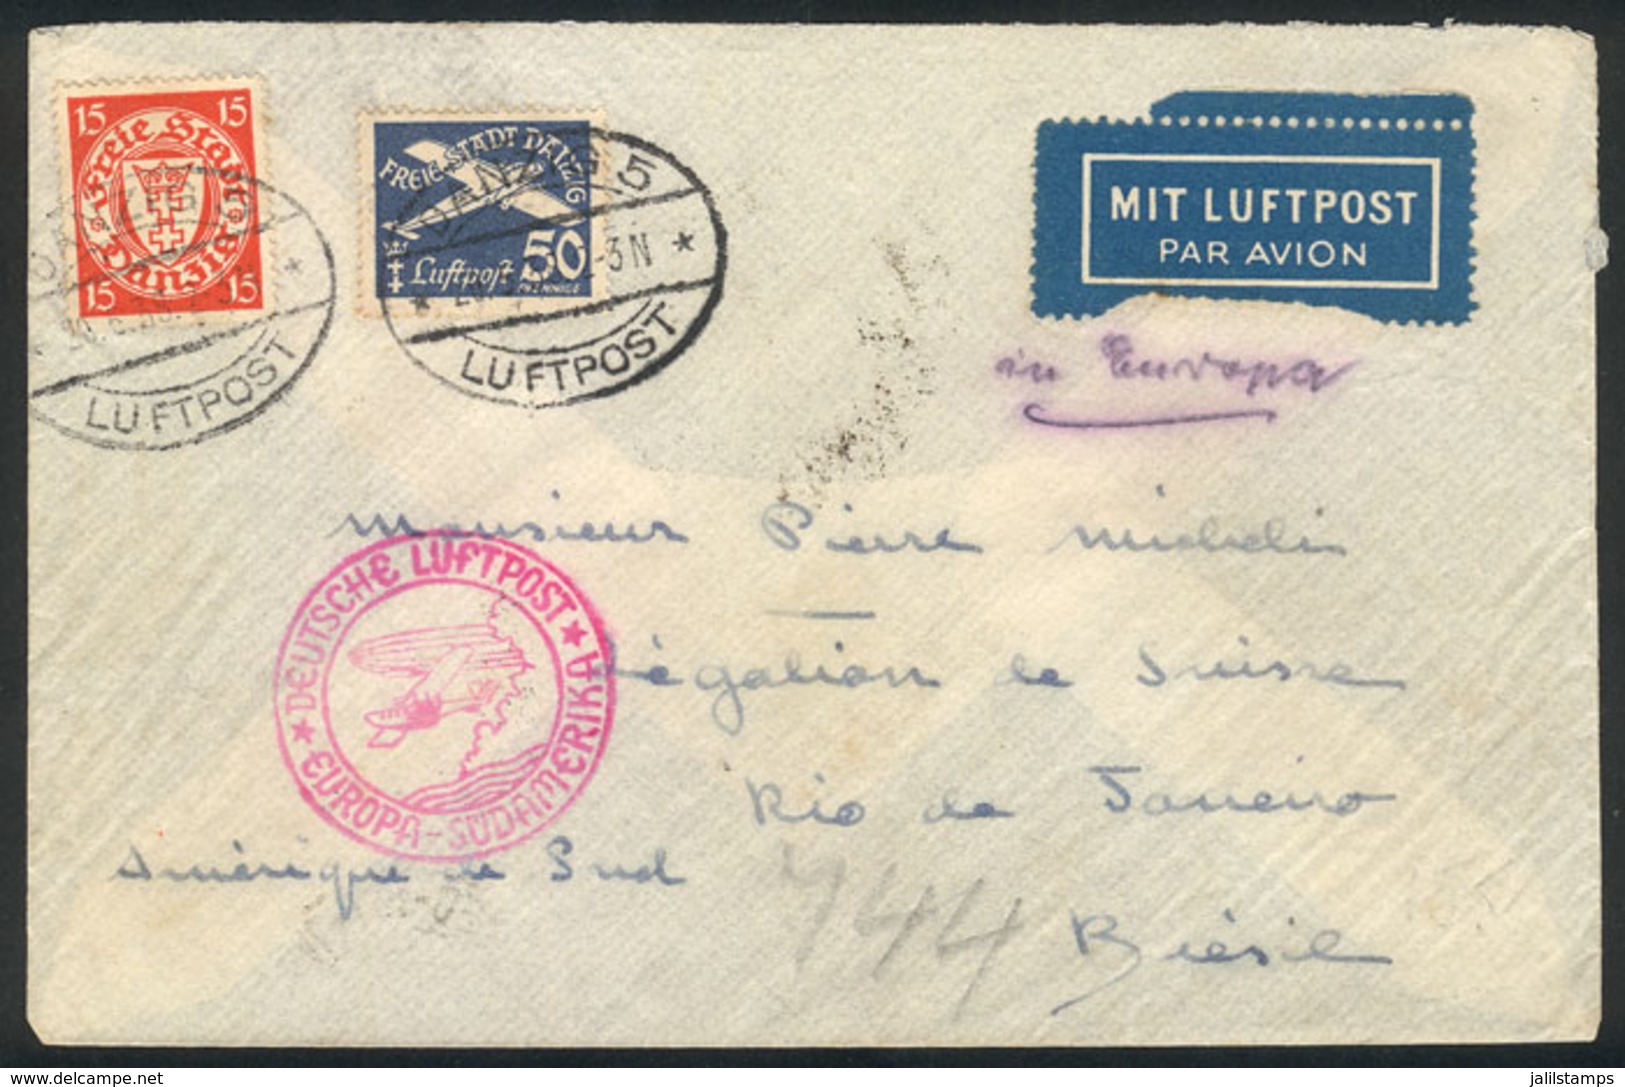 15 15
Freie Stadt
Danzig
15 15
FREIE STADT DANZIG
Luftpost 50
PFENNIGE
DANZIG 5
-3N
LUFTPOST
DANZIG 5
LUFTPOST
MIT LUFTPOST
PAR AVION
in Europa
Monsieur Pierre Micheli
Légation de Suisse
Rio de Janeiro
Amérique de Sud
Brésil
744
DEUTSCHE LUFTPOST
EUROPA-SÜDAMERIKA
delcampe.net
jalilstamps